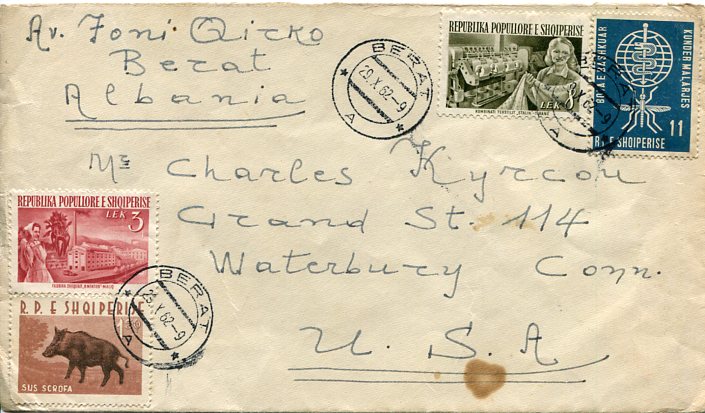 Av. Foni Qirko
Berat
Albania
BERAT
29.X.62-9
A
REPUBLIKA POPULLORE E SHQIPERISE
LEK 8
KOMBINATI TEKSTILIT „STALIN" TIRANE
BOTA E BASHKUAR
KUNDER MALARJES
11
R.P.E SHQIPERISE
BERAT
X.62-9
A
Mr Charles Kyrcou
Grand St. 114
Waterbury Conn.
U. S. A
REPUBLIKA POPULLORE E SHQIPERISE
LEK 3
R. P. E SHQIPERISE
SUS SCROFA
BERAT
29.X.62-9
A